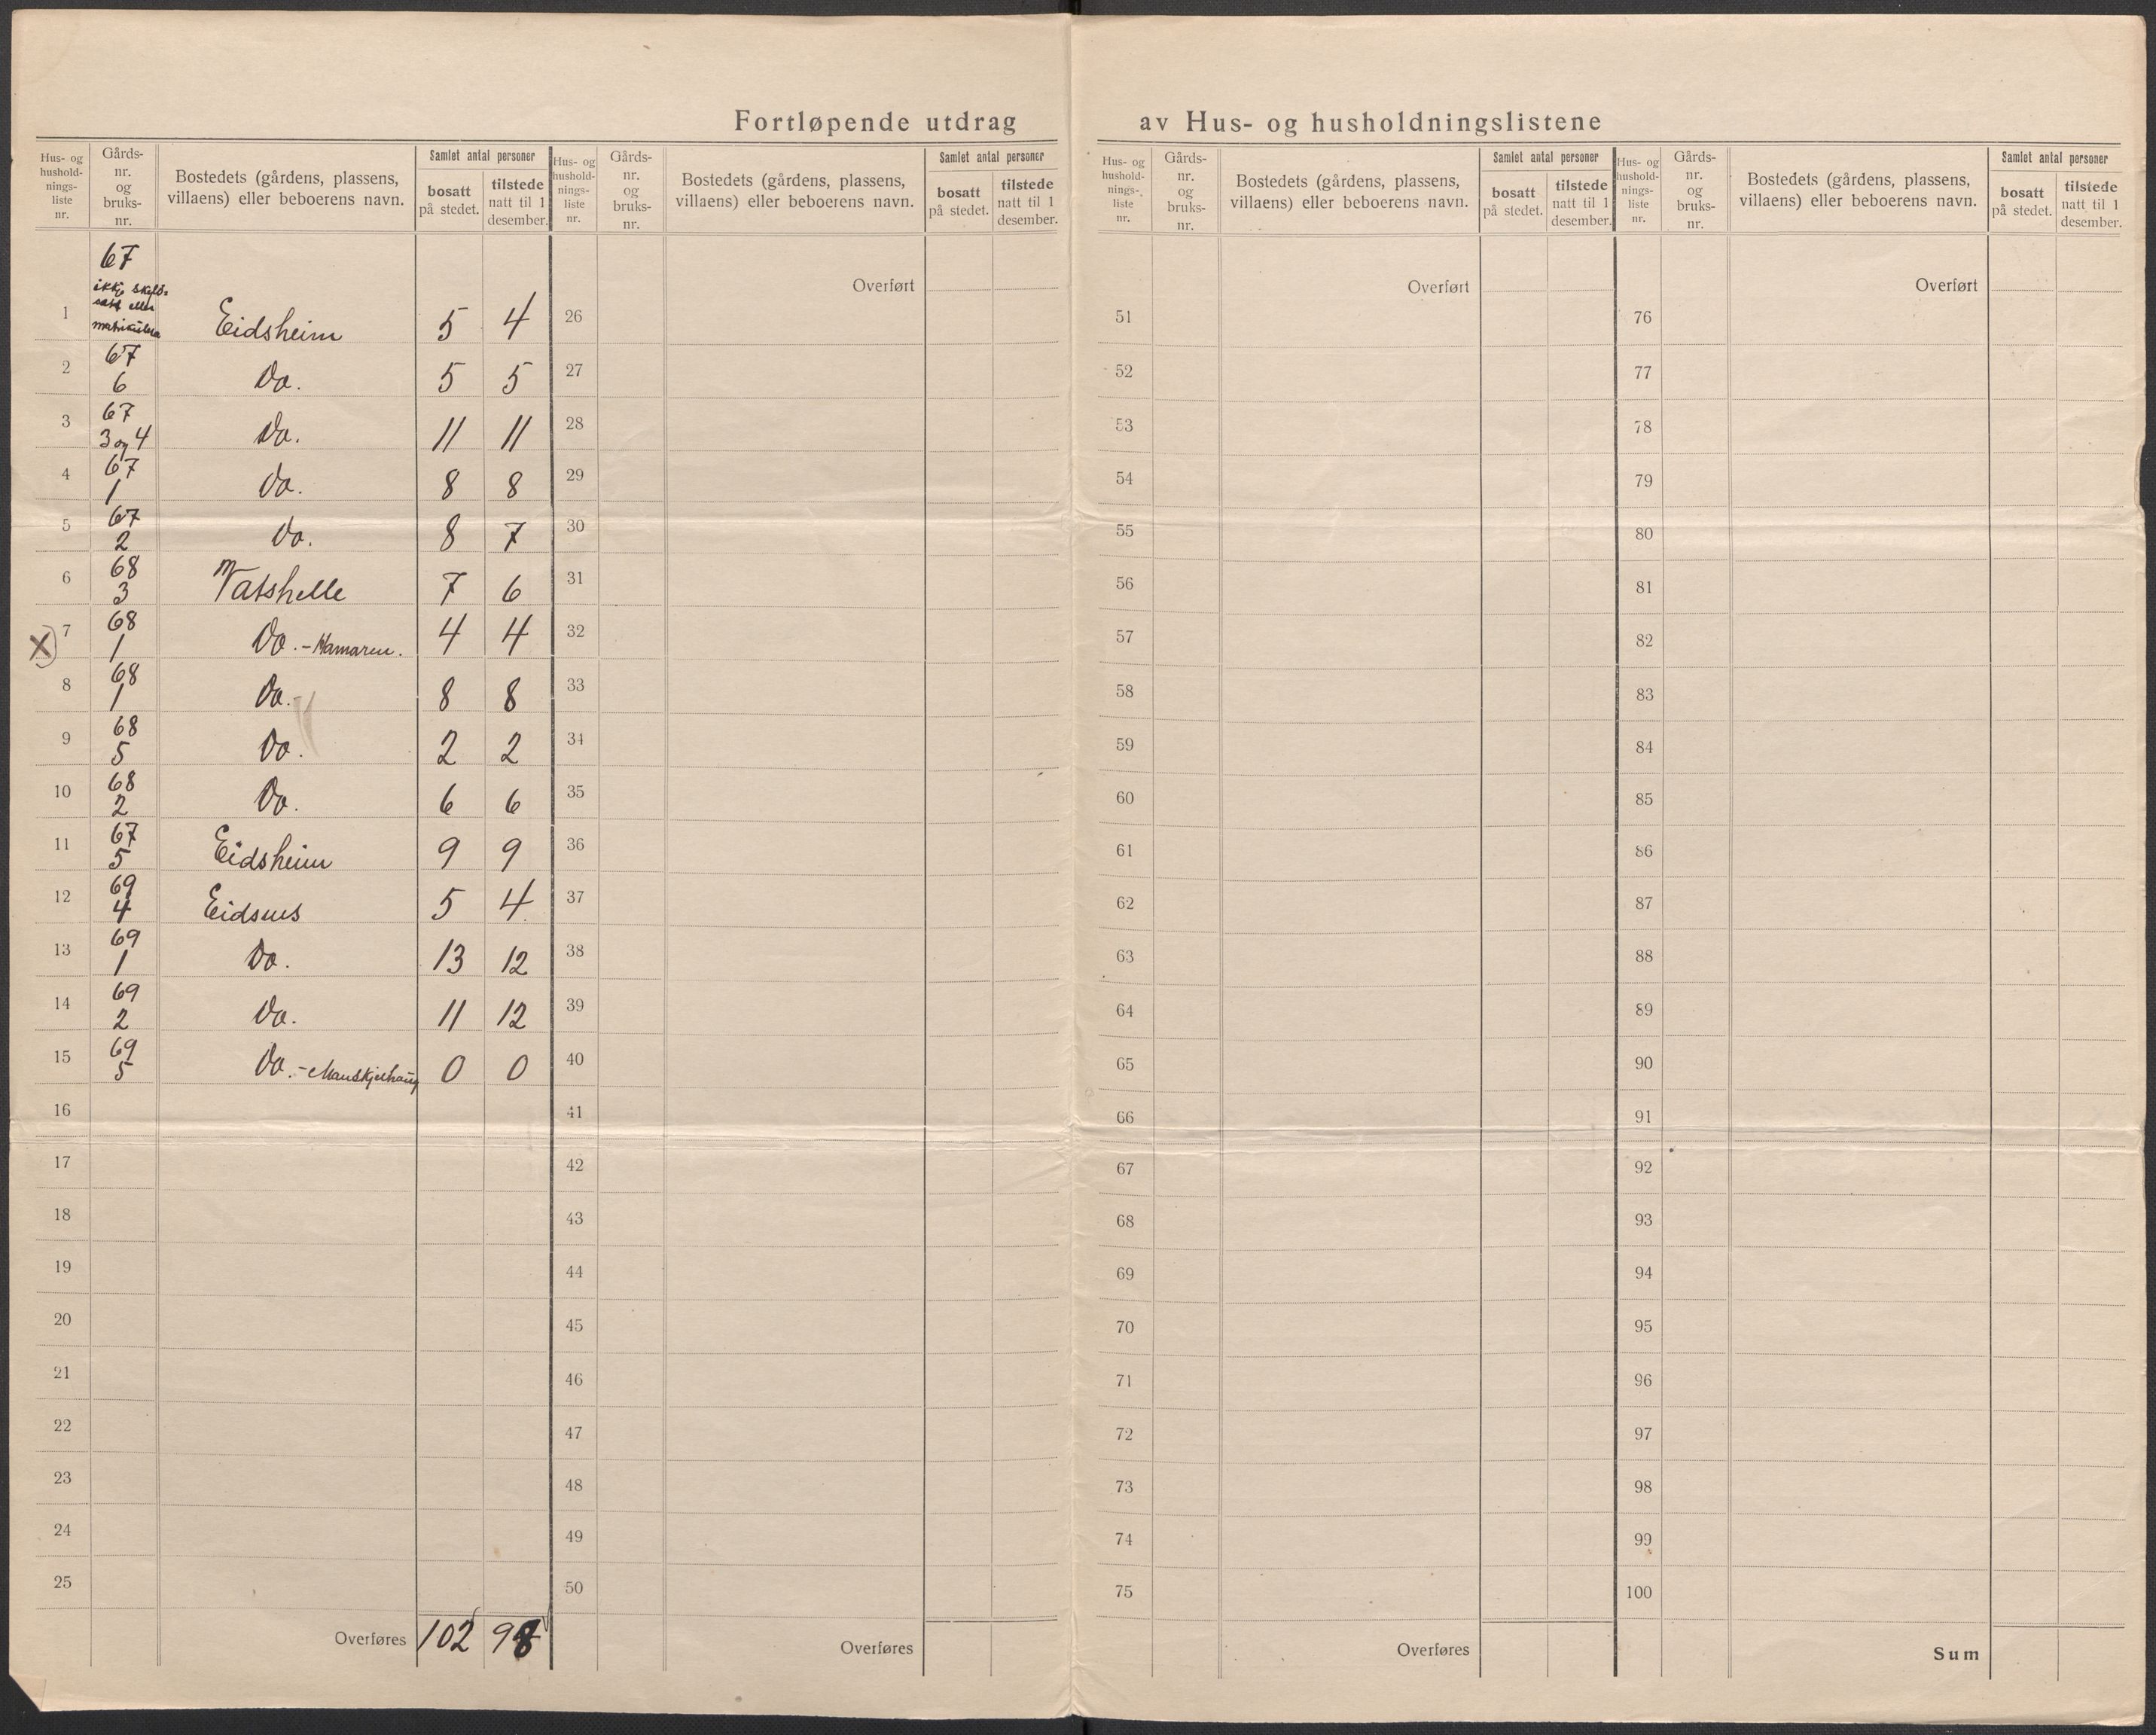 Fortløpende utdrag av Hus- og husholdningslistene
Hus- og hushold-nings-liste nr. Gårds-nr. og bruks-nr. Bostedets (gårdens, plassens, villaens) eller beboerens navn. Samlet antal personer bosatt på stedet. tilstede natt til 1 desember.
Hus- og hushold-nings-liste nr. Gårds-nr. og bruks-nr. Bostedets (gårdens, plassens, villaens) eller beboerens navn. Samlet antal personer bosatt på stedet. tilstede natt til 1 desember.
Hus- og hushold-nings-liste nr. Gårds-nr. og bruks-nr. Bostedets (gårdens, plassens, villaens) eller beboerens navn. Samlet antal personer bosatt på stedet. tilstede natt til 1 desember.
Hus- og hushold-nings-liste nr. Gårds-nr. og bruks-nr. Bostedets (gårdens, plassens, villaens) eller beboerens navn. Samlet antal personer bosatt på stedet. tilstede natt til 1 desember.
1 67 ikkje skyld-satt eller Eidsheim 5 4
2 67 6 Do. 5 5
3 67 3 og 4 Do. 11 11
4 67 1 Do. 8 8
5 67 2 Do. 8 7
6 68 3 Vatshelle 7 6
X) 7 68 1 Do. - Hamaren. 4 4
8 68 1 Do. - 8 8
9 68 5 Do. 2 2
10 68 2 Do. 6 6
11 67 5 Eidsheim 9 9
12 69 4 Eidsnes 5 4
13 69 1 Do. 13 12
14 69 2 Do. 11 12
15 69 5 Do. - 0 0
16
17
18
19
20
21
22
23
24
25
Overføres 102 98
Overført
26
27
28
29
30
31
32
33
34
35
36
37
38
39
40
41
42
43
44
45
46
47
48
49
50
Overføres
Overført
51
52
53
54
55
56
57
58
59
60
61
62
63
64
65
66
67
68
69
70
71
72
73
74
75
Overføres
Overført
76
77
78
79
80
81
82
83
84
85
86
87
88
89
90
91
92
93
94
95
96
97
98
99
100
Sum